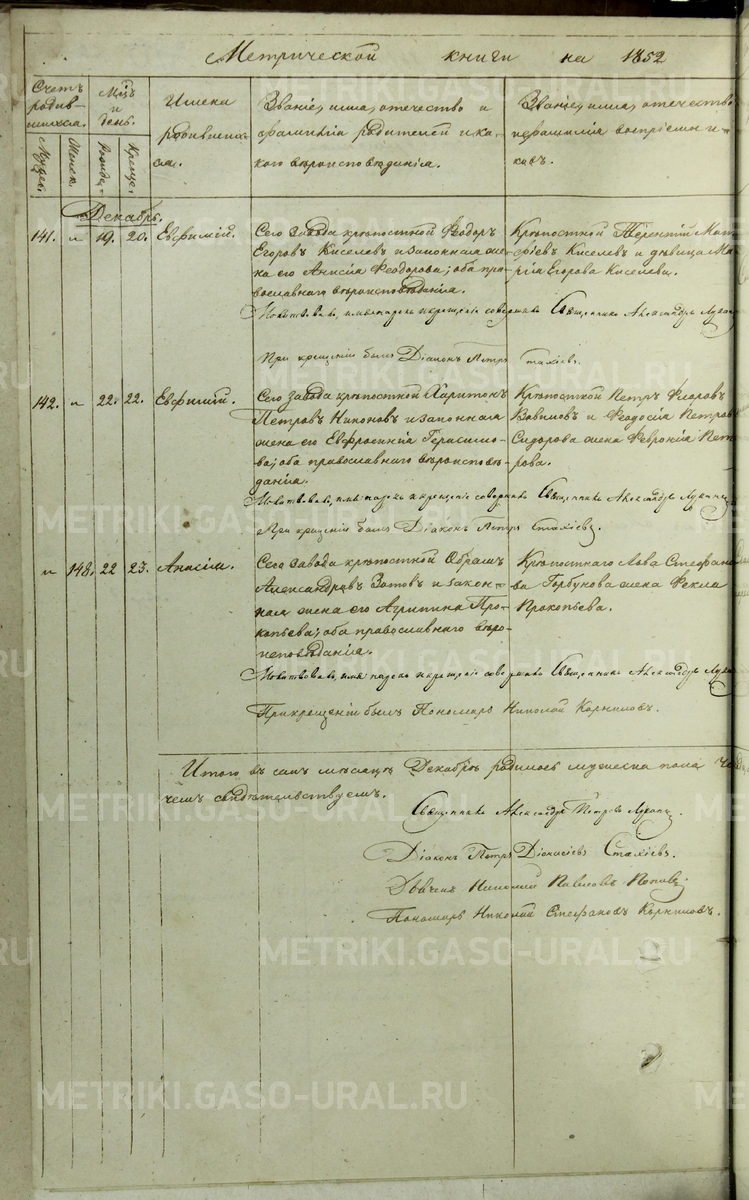 Метрической книги на 1852
Счетъ родив-шихся.
Муж.
Женск.
Мѣс. и день.
Рожде-
Креще.
Имена родившихся.
Званіе, имя, отечество и фамилія родителей и какого вѣроисповѣданія.
Званіе, имя, отечество и фамилія воспріемниковъ.
Декабрь.
141. и 19. 20. Евфимій.
Сего завода крѣпостной Ѳеодоръ
Егоровъ Киселевъ и законная же-
на его Анисія Ѳеодорова; оба пра-
вославнаго вѣроисповѣданія.
Крѣпостной Терентій Мат
фіевъ Киселевъ и дѣвица Ма-
рія Егорова Киселева.
Молитвовалъ, имя нарекъ и крещеніе совершилъ Священникъ Александръ
При крещеніи былъ Діаконъ Петръ Стахіевъ.
142. и 22. 22. Евфимій.
Сего завода крѣпостной Харитонъ
Петровъ Никоновъ и законная
жена его Евфросинія Герасимо-
ва; оба православнаго вѣроисповѣ-
данія.
Крѣпостной Петръ Ѳеоровъ
Вавиловъ и Ѳеодосія Петров
Сидорова жена Февронія Пет-
рова.
Молитвовалъ, имя нарекъ и крещеніе совершилъ Священникъ Александръ
При крещеніи былъ Діаконъ Петръ Стахіевъ
и 148. 22 23. Анисія.
Сего завода крѣпостной Абрамъ
Александровъ Зотовъ и закон-
ная жена его Агрипина Про-
копьева; оба православнаго вѣро-
исповѣданія.
Крѣпостнаго Льва Стефано
ва Горбунова жена Ѳекла
Прокопьева.
Молитвовалъ, имя нарекъ и крещеніе совершилъ Священникъ Александръ
При крещеніи былъ Пономарь Николай Корниловъ.
Итого въ семъ мѣсяцѣ Декабрѣ родилось мужеска пола
чемъ свидѣтельствуемъ.
Священникъ Александръ Петровъ
Діаконъ Петръ Діонисіевъ Стахіевъ.
Дьячекъ Николай Павловъ Поповъ
Пономарь Николай Стефановъ Корниловъ.
METRIKI.GASO-URAL.RU